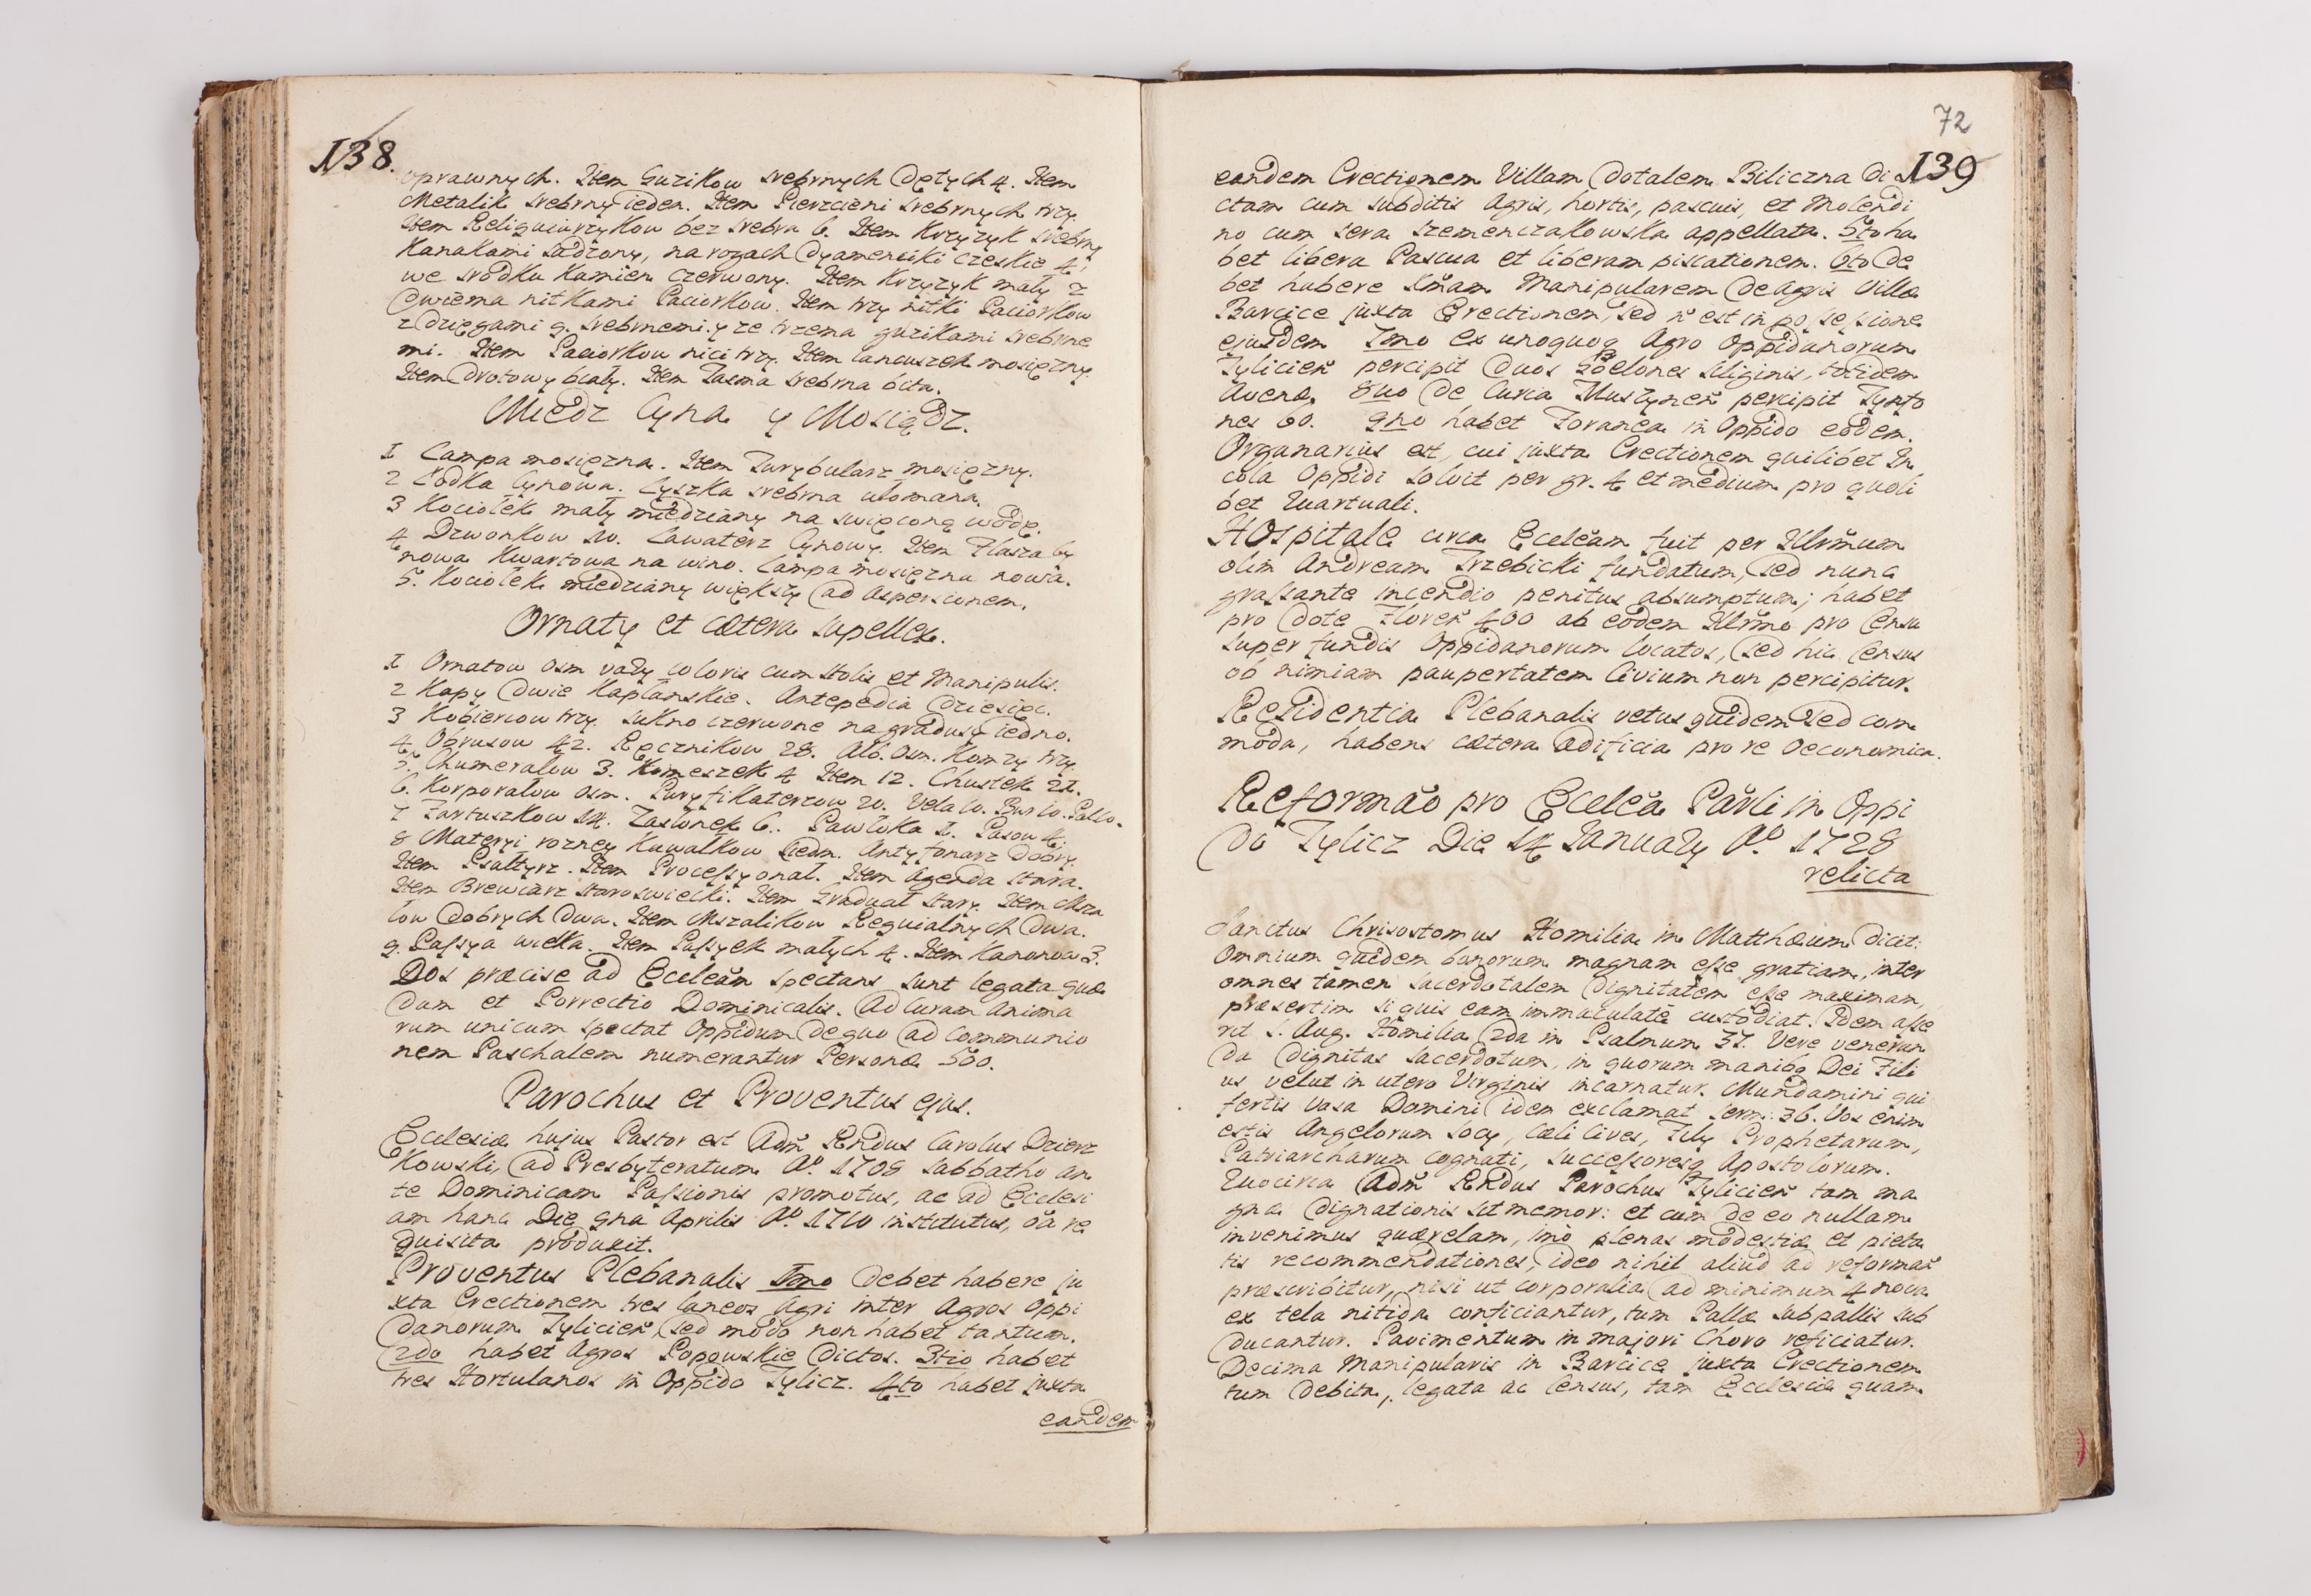 138.
oprawnych. Item Guzikow srebrnych dętych 4. Item
Metalik srebrny ieden. Item Pierzcieni srebrnych trzy.
Item Religuiarzykow bez srebra 6. Item Krzyzyk srebrny
Kanakami sadzony, na rogach dyamenciki czeskie 4,
we srodku kamien czerwony. Item Krzyzyk mały z
dwiema nitkami Paciorkow. Item trzy nitki Paciorkow
z dzięgami 9. srebrnemi. y ze trzema guzikami srebrne
mi. Item Paciorkow nici trzy. Item lancuszek mosięzny.
Item drotowy biały. Item Tasma srebrna bita.
Miedz Cyna y Mosiądz.
1 Lampa mosięzna. Item Turybularz mosięzny.
2 Łodka Cynowa. Łyszka srebrna ułomana.
3 Kociołek mały miedziany na swięconą wodę.
4 Dzwonkow 10. Lawaterz Cynowy. Item Flasza Cy
nowa Kwartowa na wino. Lampa mosięzna nowa.
5. Kociołek miedziany większy ad aspersionem.
Ornaty et cætera supellex.
1 Ornatow osm vary coloris cum stolis et Manipulis.
2 Kapy dwie Kapłanskie. Antepedia dziesięc.
3 Kobiercow trzy. Sukno czerwone na gradusy iedno.
4 Obrusow 42. Ręcznikow 28. Alb. Osm. Komzy trzy.
5. Chumerałow 3. Komeszek 4 Item 12. Chustek 21.
6. Korporałow osm. Puryfikaterzow 20. Vela 10. Bur 10. Palls.
7 Fartuszkow 14. Zasłonek 6. Pawłoka 1. Pasow 4.
8 Materyi rozney Kawałkow siedm. Antyfonarz dobry.
Item Psałtyrz. Item Processyonał. Item Agenda stara.
Item Brewiarz staroswiecki. Item Graduał stary. Item Msza
łow dobrych dwa. Item Mszalikow Requialnych dwa.
9. Passya wielka. Item Passyek małych 4. Item Kanonow 3.
Dos præcise ad Eccleãm spectans sunt legata quæ
dam et Porrectio Dominicalis. Ad Curam Anima
rum unicum spectat Oppidum de quo ad Communio
nem Paschalem numerantur Personæ 500.
Parochus et Proventus ejus.
Ecclesiæ hujus Pastor est Adm̃ Rñdus Carolus Dzierz
Kowski, ad Presbyteratum Aº. 1708 Sabbatho an
te Dominicam Passionis promotus, ac ad Ecclesi
am hanc Die 9na Aprilis Aº. 1710 institutus, õa re
quisita produxit.
Proventus Plebanalis 1mo debet habere ju
xta Erectionem tres laneos Agri inter Agros Oppi
danorum Tylicien̄, sed modo non habet tantum.
2do habet Agros Popowskie dictos. 3tio habet
tres Hortulanos in Oppido Tylicz. 4to habet juxta
eandem
72
139
eandem Erectionem Villam dotalem Biliczna di
ctam cum subditis Agris, hortis, pascuis, et Molendi
no cum sera Szemenczakowska appellata. 5to ha
bet libera Pascua et liberam piscationem. 6to de
bet habere Xmam Manipularem de Agris Villæ
Barcice juxta Erectionem, sed ñ est in possessione
ejusdem 7mo ex unoquoq Agro Oppidanorum
Tylicien̄ percipit duos Corelones siliginis, totidem
Avenæ. 8vo De Curia Muszynen̄ percipit Tynfo
nes 60. 9no habet Forança in Oppido eodem.
Organarius est, cui juxta Erectionem quilibet In
cola Oppidi solvit per gr. 4 et medium pro quoli
bet Quartuali.
Hospitale circa Eccleãm fuit per Illrm̃um
olim Andream Trzebicki fundatum, sed nunc
grassante incendio penitus absumptum; habet
pro dote Floren̄ 400 ab eodem Illrm̃o pro Censu
super fundis Oppidanorum locatos, sed hic Census
ob nimiam paupertatem Civium non percipitur.
Residentia Plebanalis vetus quidem sed com
moda, habens cætera ædificia pro re oeconomica.
Reformão pro Eccleã Parli in Oppi
do Tylicz Die 14 January Aº 1728
relicta
Sanctus Chrisostomus Homilia in Matthæum dicit:
Omnium quidem bonorum magnam esse gratiam, inter
omnes tamen sacerdotalem dignitatem esse maximam,
præsertim si quis eam immaculatè custodiat. Idem asse
rit S. Aug. Homilia 2da in Psalmum 37. Vere veneran
da dignitas sacerdotum, in quorum manibq Dei Fili
us velut in utero Virginis incarnatur. Mundamini qui
fertis Vasa Domini idem exclamat serm: 36. Vos enim
estis Angelorum Socy, Cæli Cives, Fily Prophetarum,
Patriarcharum Cognati, Successoresq Apostolorum.
Quocirca Adm̃ Rñdus Parochus Tylicien̄ tam ma
gnæ dignationis sit memor: et cùm de eo nullam
invenimus quærelam, imò plenas modestiæ et pieta
tis recommendationes, ideo nihil aliud ad reformañ
præscribitur, nisi ut corporalia ad minimum 4 nova
ex tela nitida conficiantur, tum Pallæ subpallis sub
ducantur. Pavimentum in majori Choro reficiatur.
Decima Manipularis in Barcice juxta Erectionem
tum debita, legata ac Census, tam Ecclesiæ quam